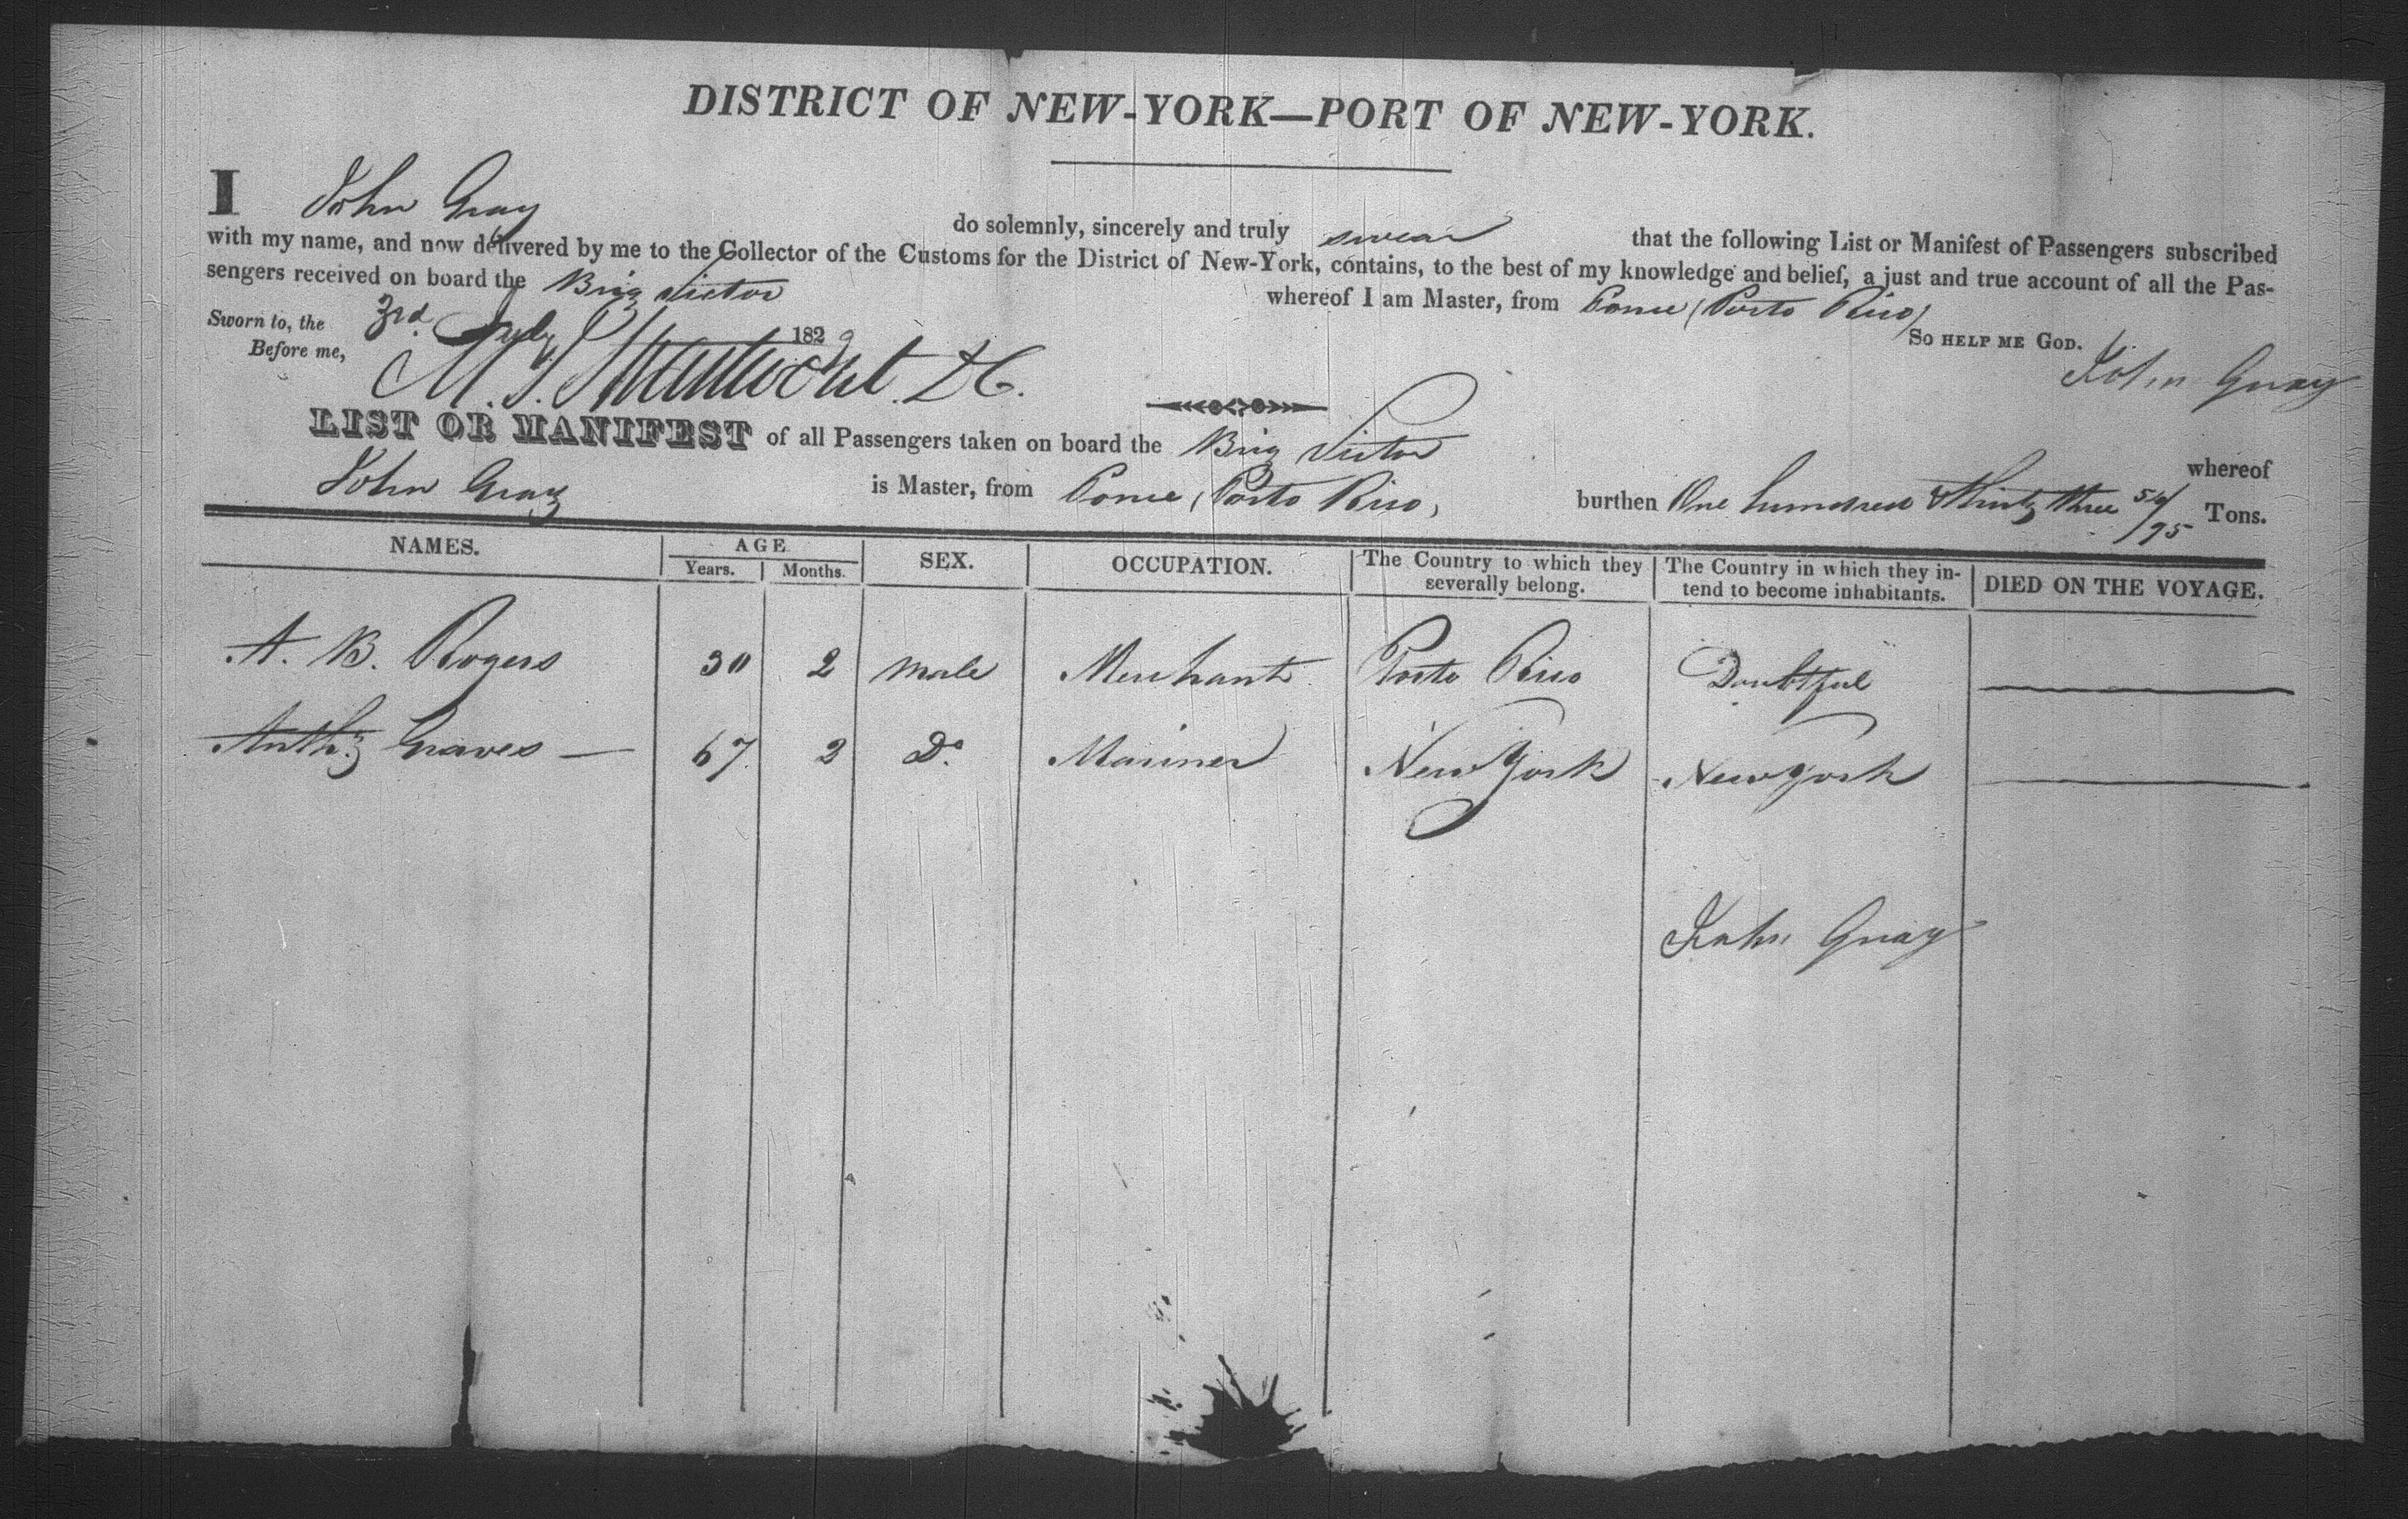 DISTRICT OF NEW-YORK—PORT OF NEW-YORK.
I John Gray do solemnly, sincerely and truly swear that the following List or Manifest of Passengers subscribed
with my name, and now delivered by me to the Collector of the Customs for the District of New-York, contains, to the best of my knowledge and belief, a just and true account of all the Pas-
sengers received on board the Brig Victor whereof I am Master, from Ponce (Porto Rico)
Sworn to, the 3rd July 1829 So HELP ME GOD.
Before me, John Gray
LIST OR MANIFEST of all Passengers taken on board the Brig Victor whereof
John Gray is Master, from Ponce (Porto Rico) burthen One hundred & thirty three /95 Tons.
NAMES. AGE SEX. OCCUPATION. The Country to which they severally belong. The Country in which they in-tend to become inhabitants. DIED ON THE VOYAGE.
Years. Months.
A. B. Rogers 30 2 Male Merchant Porto Rico Doubtful
Anthy Graves — 67 2 Do. Mariner New York New York
John Gray